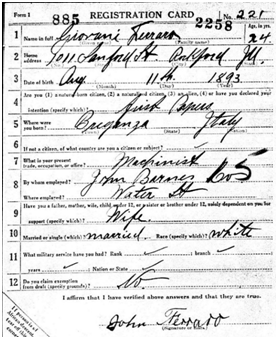 Form 1 885 REGISTRATION CARD 2258 No. 221
1 Name in full Giovani Ferraro Age, in yrs. 24
(Given name) (Family name)
2 Home address 1011 Sanford St. Rockford Ill.
3 Date of birth Aug. 11th 1893
(Month) (Day) (Year)
4 Are you (1) a natural-born citizen, (2) a naturalized citizen, (3) an alien, (4) or have you declared your
intention (specify which)? first Papers
5 Where were you born? Breganza Italy
(Town) (State) (Nation)
6 If not a citizen, of what country are you a citizen or subject?
7 What is your present trade, occupation, or office? Machinist
8 By whom employed? John Barnes Co
Where employed? Water St
9 Have you a father, mother, wife, child under 12, or a sister or brother under 12, solely dependent on you for
support (specify which)? Wife
10 Married or single (which)? married Race (specify which)? white
11 What military service have you had? Rank ; branch
years ; Nation or State
12 Do you claim exemption from draft (specify grounds)? No
I affirm that I have verified above answers and that they are true.
John Ferraro